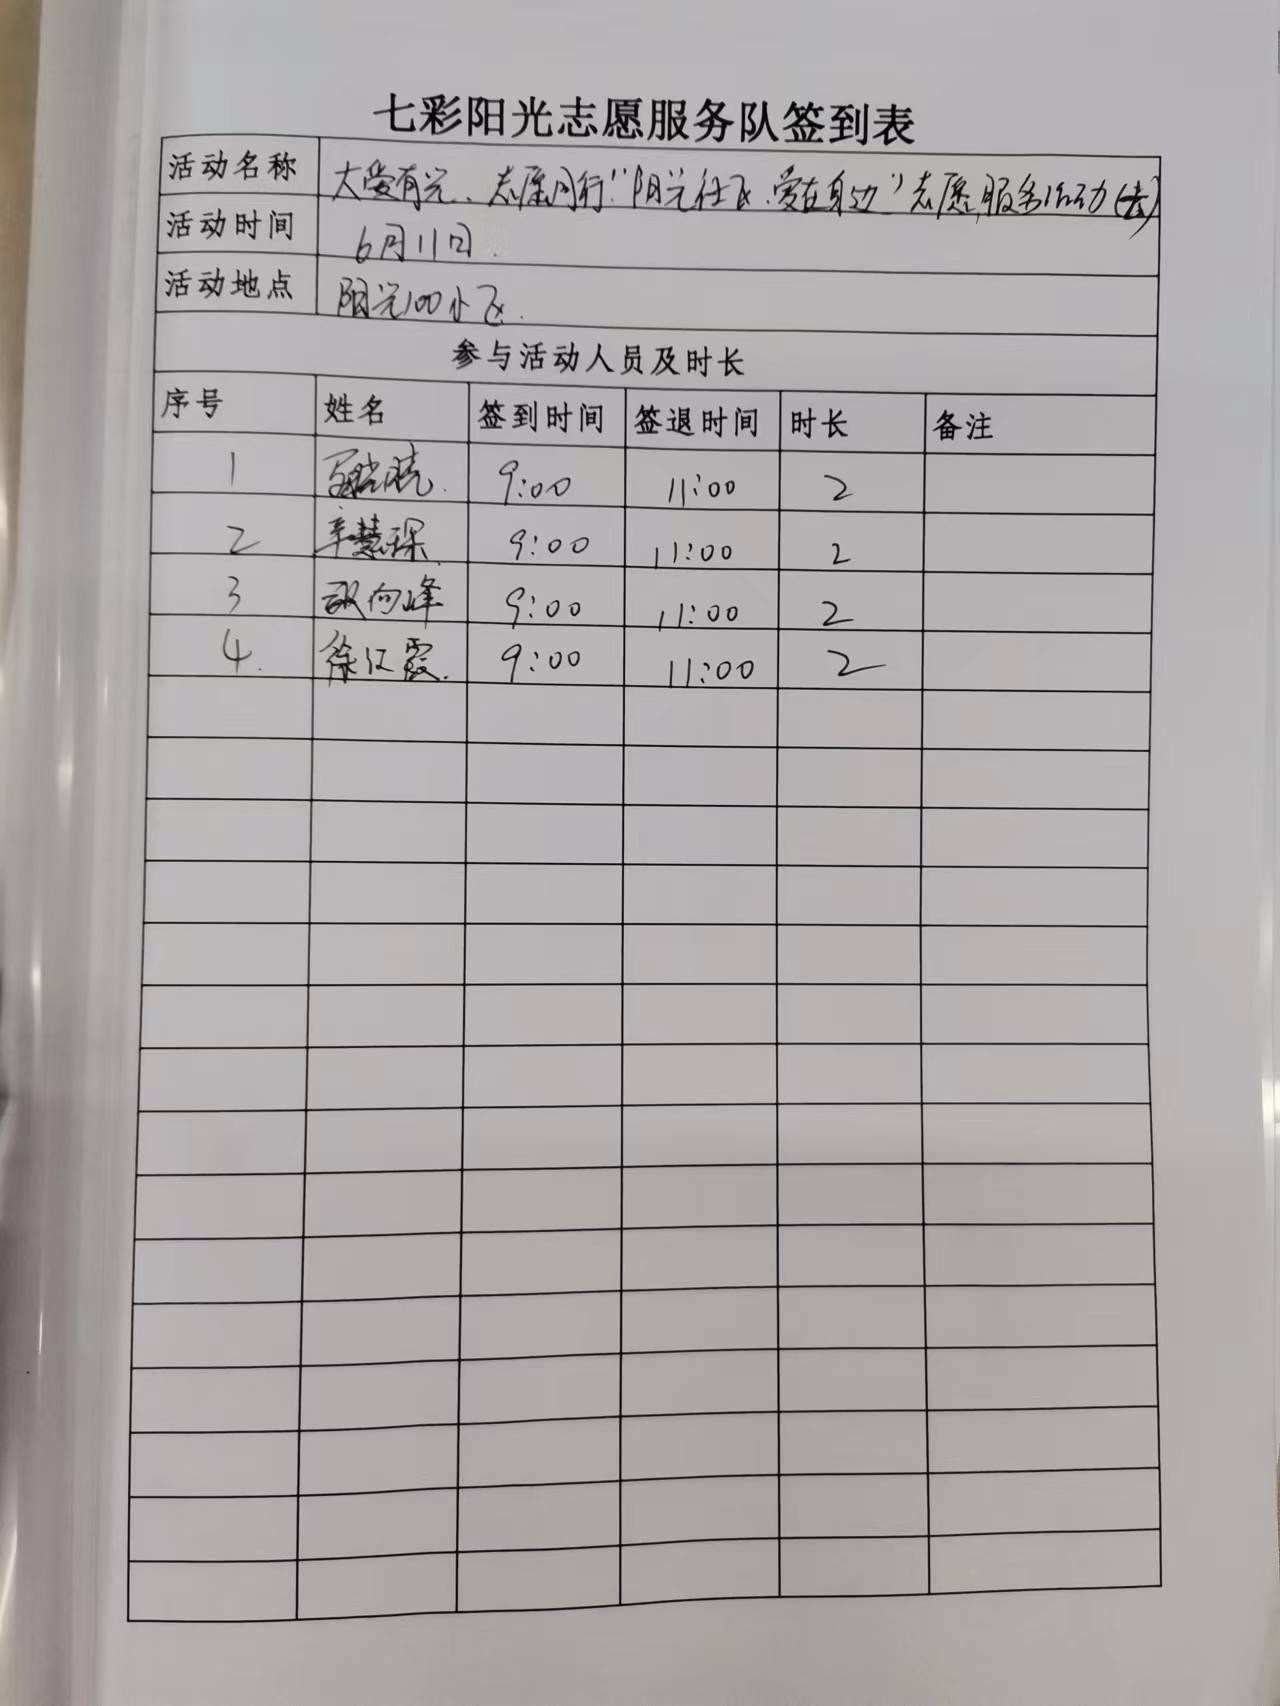 七彩阳光志愿服务队签到表
活动名称 大爱有光、志愿同行"阳光社区、爱在身边"志愿服务活动
活动时间 6月11日.
活动地点 阳光100小区.
参与活动人员及时长
序号 姓名 签到时间 签退时间 时长 备注
1 9:00 11:00 2
2 辛慧琛 9:00 11:00 2
3 向峰 9:00 11:00 2
4. 徐江霞. 9:00 11:00 2